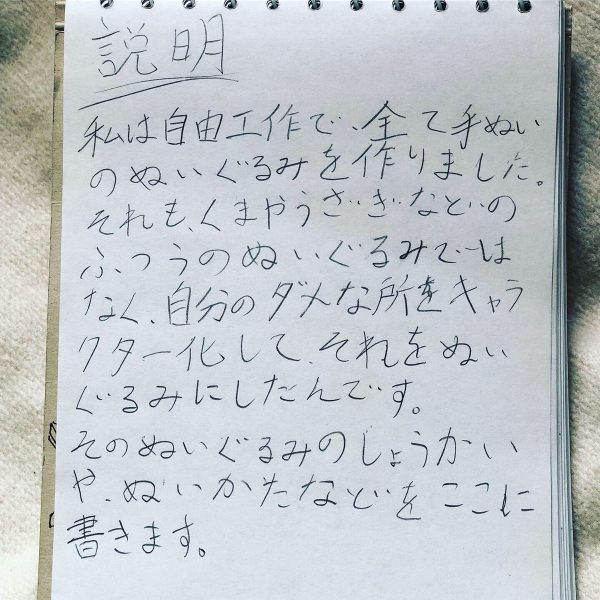 説明
私は自由工作で、全て手ぬい
のぬいぐるみを作りました。
それも、くまやうさぎなどの
ふつうのぬいぐるみでは
なく、自分のダメな所をキャラ
クター化して、それをぬい
ぐるみにしたんです。
そのぬいぐるみのしょうかい
や、ぬいかたなどをここに
書きます。